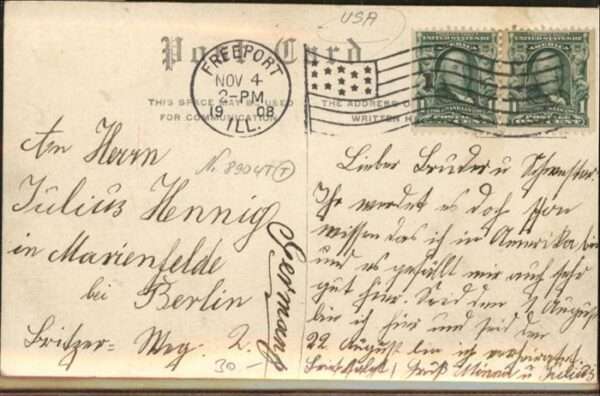 USA
Post Card
FREEPORT
NOV 4
2-PM
1908
ILL.
UNITED STATES OF AMERICA
UNITED STATES OF AMERICA
1
1
1
1
THIS SPACE MAY BE USED
FOR COMMUNICATION
THE ADDRESS O
WRITTEN H
An Herrn
N. 8904T T
Julius Hennig
in Marienfelde
bei Berlin
Britzer-Weg. 2.
Germany
30-
Lieber Bruder u Schwester.
Ihr werdet es doch schon
wissen das ich in Amerika bin
und es gefällt mir auch sehr
gut hier. Seid den 7 August
bin ich hier und seid den
22 August bin ich verheiratet.
Gruß Minna u Julius